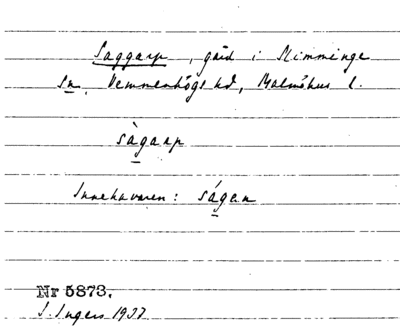 Saggarp, gård i Slimminge
Sn, Vemmenhögs hd, Malmöhus l.
sàgarp
Innehavaren: ságen
Nr 5873.
I. Ingers 1937